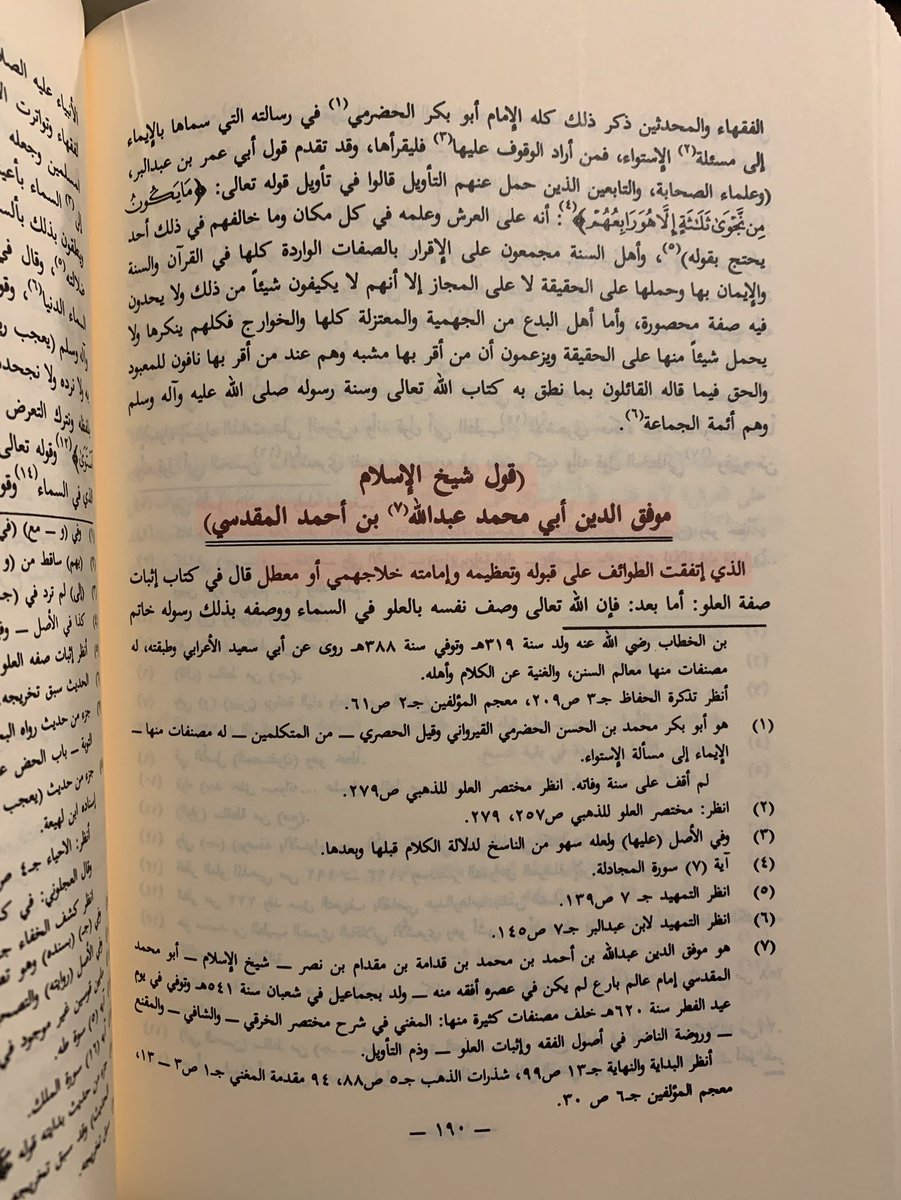 الفقهاء والمحدثين ذكر ذلك كله الإمام أبو بكر الحضرمي(١) في رسالته التي سماها بالإيماء
إلى مسئلة(٢) الإستواء، فمن أراد الوقوف عليها(٣) فليقرأها، وقد تقدم قول أبي عمر بن عبدالبر،
(وعلماء الصحابة، والتابعين الذين حمل عنهم التأويل قالوا في تأويل قوله تعالى: ﴿مَايَكُونُ
مِن نَّجْوَىٰ ثَلَٰثَةٍ إِلَّا هُوَ رَابِعُهُمْ﴾(٤): أنه على العرش وعلمه في كل مكان وما خالفهم في ذلك أحد
يحتج بقوله)(٥)، وأهل السنة مجمعون على الإقرار بالصفات الواردة كلها في القرآن والسنة
والإيمان بها وحملها على الحقيقة لا على المجاز إلا أنهم لا يكيفون شيئاً من ذلك ولا يحدون
فيه صفة محصورة، وأما أهل البدع من الجهمية والمعتزلة كلها والخوارج فكلهم ينكرها ولا
يحمل شيئاً منها على الحقيقة ويزعمون أن من أقر بها مشبه وهم عند من أقر بها نافون للمعبود
والحق فيما قاله القائلون بما نطق به كتاب الله تعالى وسنة رسوله صلى الله عليه وآله وسلم
وهم أئمة الجماعة(٦).
(قول شيخ الإسلام
موفق الدين أبي محمد عبدالله(٧) بن أحمد المقدسي)
الذي إتفقت الطوائف على قبوله وتعظيمه وإمامته خلاجهمي أو معطل قال في كتاب إثبات
صفة العلو: أما بعد: فإن الله تعالى وصف نفسه بالعلو في السماء ووصفه بذلك رسوله خاتم
بن الخطاب رضي الله عنه ولد سنة ٣١٩هـ وتوفي سنة ٣٨٨هـ روى عن أبي سعيد الأعرابي وطبقته، له
مصنفات منها معالم السنن، والغنية عن الكلام وأهله.
أنظر تذكرة الحفاظ جـ٣ ص٢٠٩، معجم المؤلفين جـ٢ ص٦١.
(١) هو أبو بكر محمد بن الحسن الحضرمي القيرواني وقيل الحصري — من المتكلمين — له مصنفات منها —
الإيماء إلى مسألة الإستواء.
لم أقف على سنة وفاته. انظر مختصر العلو للذهبي ص٢٧٩.
(٢) انظر: مختصر العلو للذهبي ص٢٥٧، ٢٧٩.
(٣) وفي الأصل (عليها) ولعله سهو من الناسخ لدلالة الكلام قبلها وبعدها.
(٤) آية (٧) سورة المجادلة.
(٥) انظر التمهيد جـ ٧ ص١٣٩.
(٦) انظر التمهيد لابن عبدالبر جـ٧ ص١٤٥.
(٧) هو موفق الدين عبدالله بن أحمد بن محمد بن قدامة بن مقدام بن نصر — شيخ الإسلام — أبو محمد
المقدسي إمام عالم بارع لم يكن في عصره أفقه منه — ولد بجماعيل في شعبان سنة ٥٤١هـ وتوفي في يوم
عيد الفطر سنة ٦٢٠هـ خلف مصنفات كثيرة منها: المغني في شرح مختصر الخرقي — والشافي — والمقنع
— وروضة الناضر في أصول الفقه وإثبات العلو — وذم التأويل.
أنظر البداية والنهاية جـ١٣ ص٩٩، شذرات الذهب جـ٥ ص٨٨، ٩٤ مقدمة المغني جـ١ ص٣ — ١٣،
معجم المؤلفين جـ٦ ص ٣٠.
— ١٩٠ —